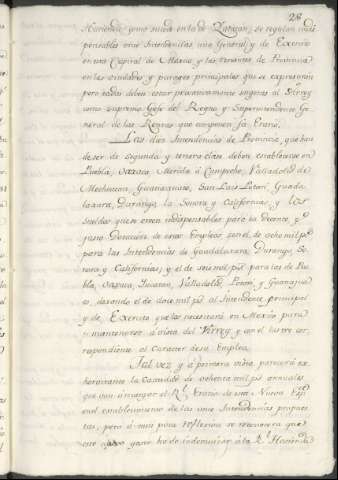 28
Haciendas, como sucede en la de Zarazan, se regulan indis
pensables once Intendencias, una General y de Exercito
en esta Capital de Mexico y las restantes de Provincia
en las ciudades y parages principales que se expresarán
pero todas deben estar privativamente sugetas al Virrey
como supremo Gefe del Reyno y Superintendente Ge
neral de las Rentas que componen su Erario.
Las diez Intendencias de Provincia, que han
de ser de segunda y tercera clase, deben establecerse en
Puebla, Oaxaca, Merida ó Campeche, Valladolid de
Mechoacan, Guanaxuato, San Luis Potosi, Guada
laxara, Durango, la Sonora y Californias, y los
sueldos que se creen indispensables para la decente, y
justa Dotacion de estos Empleos, son el de ocho mil ps
para las Intendencias de Guadalaxara, Durango, So
nora y Californias; y el de seis mil ps para las de Pue
bla, Oaxaca, Yucatan, Valladolid, Potosi, y Guanaxua
to, dexando el de doce mil ps al Intendente principal
y de Exercito que los necesitará en Mexico para
mantenerse á vista del Virrey y con el lustre cor
respondiente al caracter de su Empleo.
Tal vez y á primera vista parecerá ex
horvitante la cantidad de ochenta mil ps annuales
que van á recargar el Rl Erario de esta Nueva Espa
en el establecimiento de las once Intendencias propues
tas, pero á mui poca reflexion se reconocerá que
este gasto ha de indemnizar á la Rl Hacienda